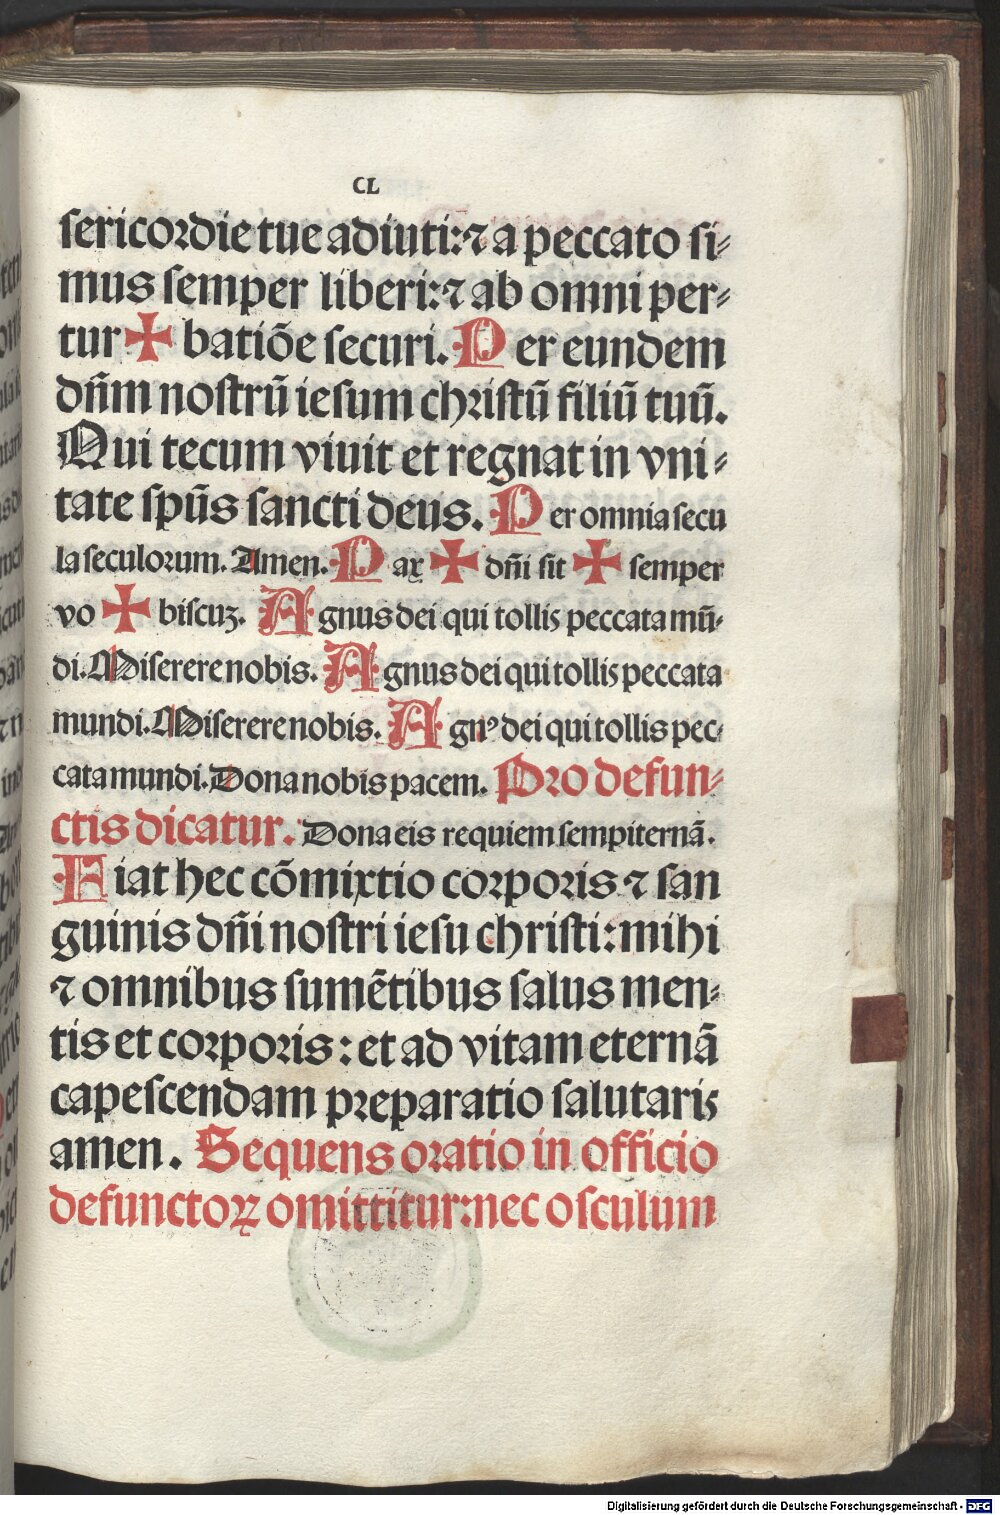 CL
sericordie tue adiuti: ⁊ a peccato si⸗
mus semper liberi: ⁊ ab omni per⸗
tur ✠ batiõe securi. Per eundem
dñm nostrũ iesum christũ filiũ tuũ.
Qui tecum viuit et regnat in vni⸗
tate spũs sancti deus. Per omnia secu
la seculorum. Amen. Pax ✠ dñi sit ✠ semper
vo ✠ biscuʒ. Agnus dei qui tollis peccata mũ⸗
di. Miserere nobis. Agnus dei qui tollis peccata
mundi. Miserere nobis. Agnꝰ dei qui tollis pec⸗
cata mundi. Dona nobis pacem. Pro defun⸗
ctis dicatur. Dona eis requiem sempiternã.
Fiat hec cõmixtio corporis ⁊ san
guinis dñi nostri iesu christi: mihi
⁊ omnibus sumẽtibus salus men⸗
tis et corporis: et ad vitam eternã
capescendam preparatio salutaris
amen. Sequens oratio in officio
defunctoꝝ omittitur: nec osculum
Digitalisierung gefördert durch die Deutsche Forschungsgemeinschaft - DFG